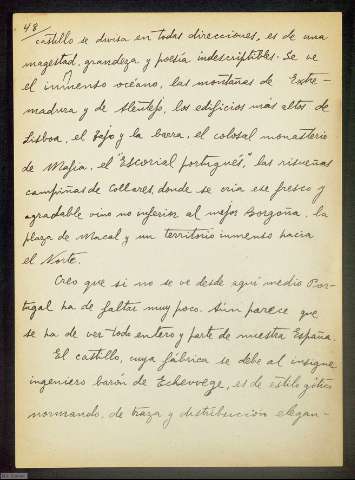 48
castillo se divisa en todas direcciones, es de una
magestad, grandeza y poesía indescriptibles. Se ve
el inmenso océano, las montañas de Extre-
madura y de Alentejo, los edificios más altos de
Lisboa, el Tajo y la barra, el colosal monasterio
de Mafra, el "Escorial portugués", las risueñas
campiñas de Collares, donde se cria ese fresco y
agradable vino no inferior al mejor Borgoña, la
plaza de Macal y un territorio inmenso hacia
el Norte.
Creo que si no se ve desde aquí medio Por-
tugal ha de faltar muy poco. Aun parece que
se ha de ver todo entero y parte de nuestra España.
El castillo, cuya fábrica se debe al insigne
ingeniero barón de Echewege, es de estilo gótico
normando, de traza y distribucion elegan-